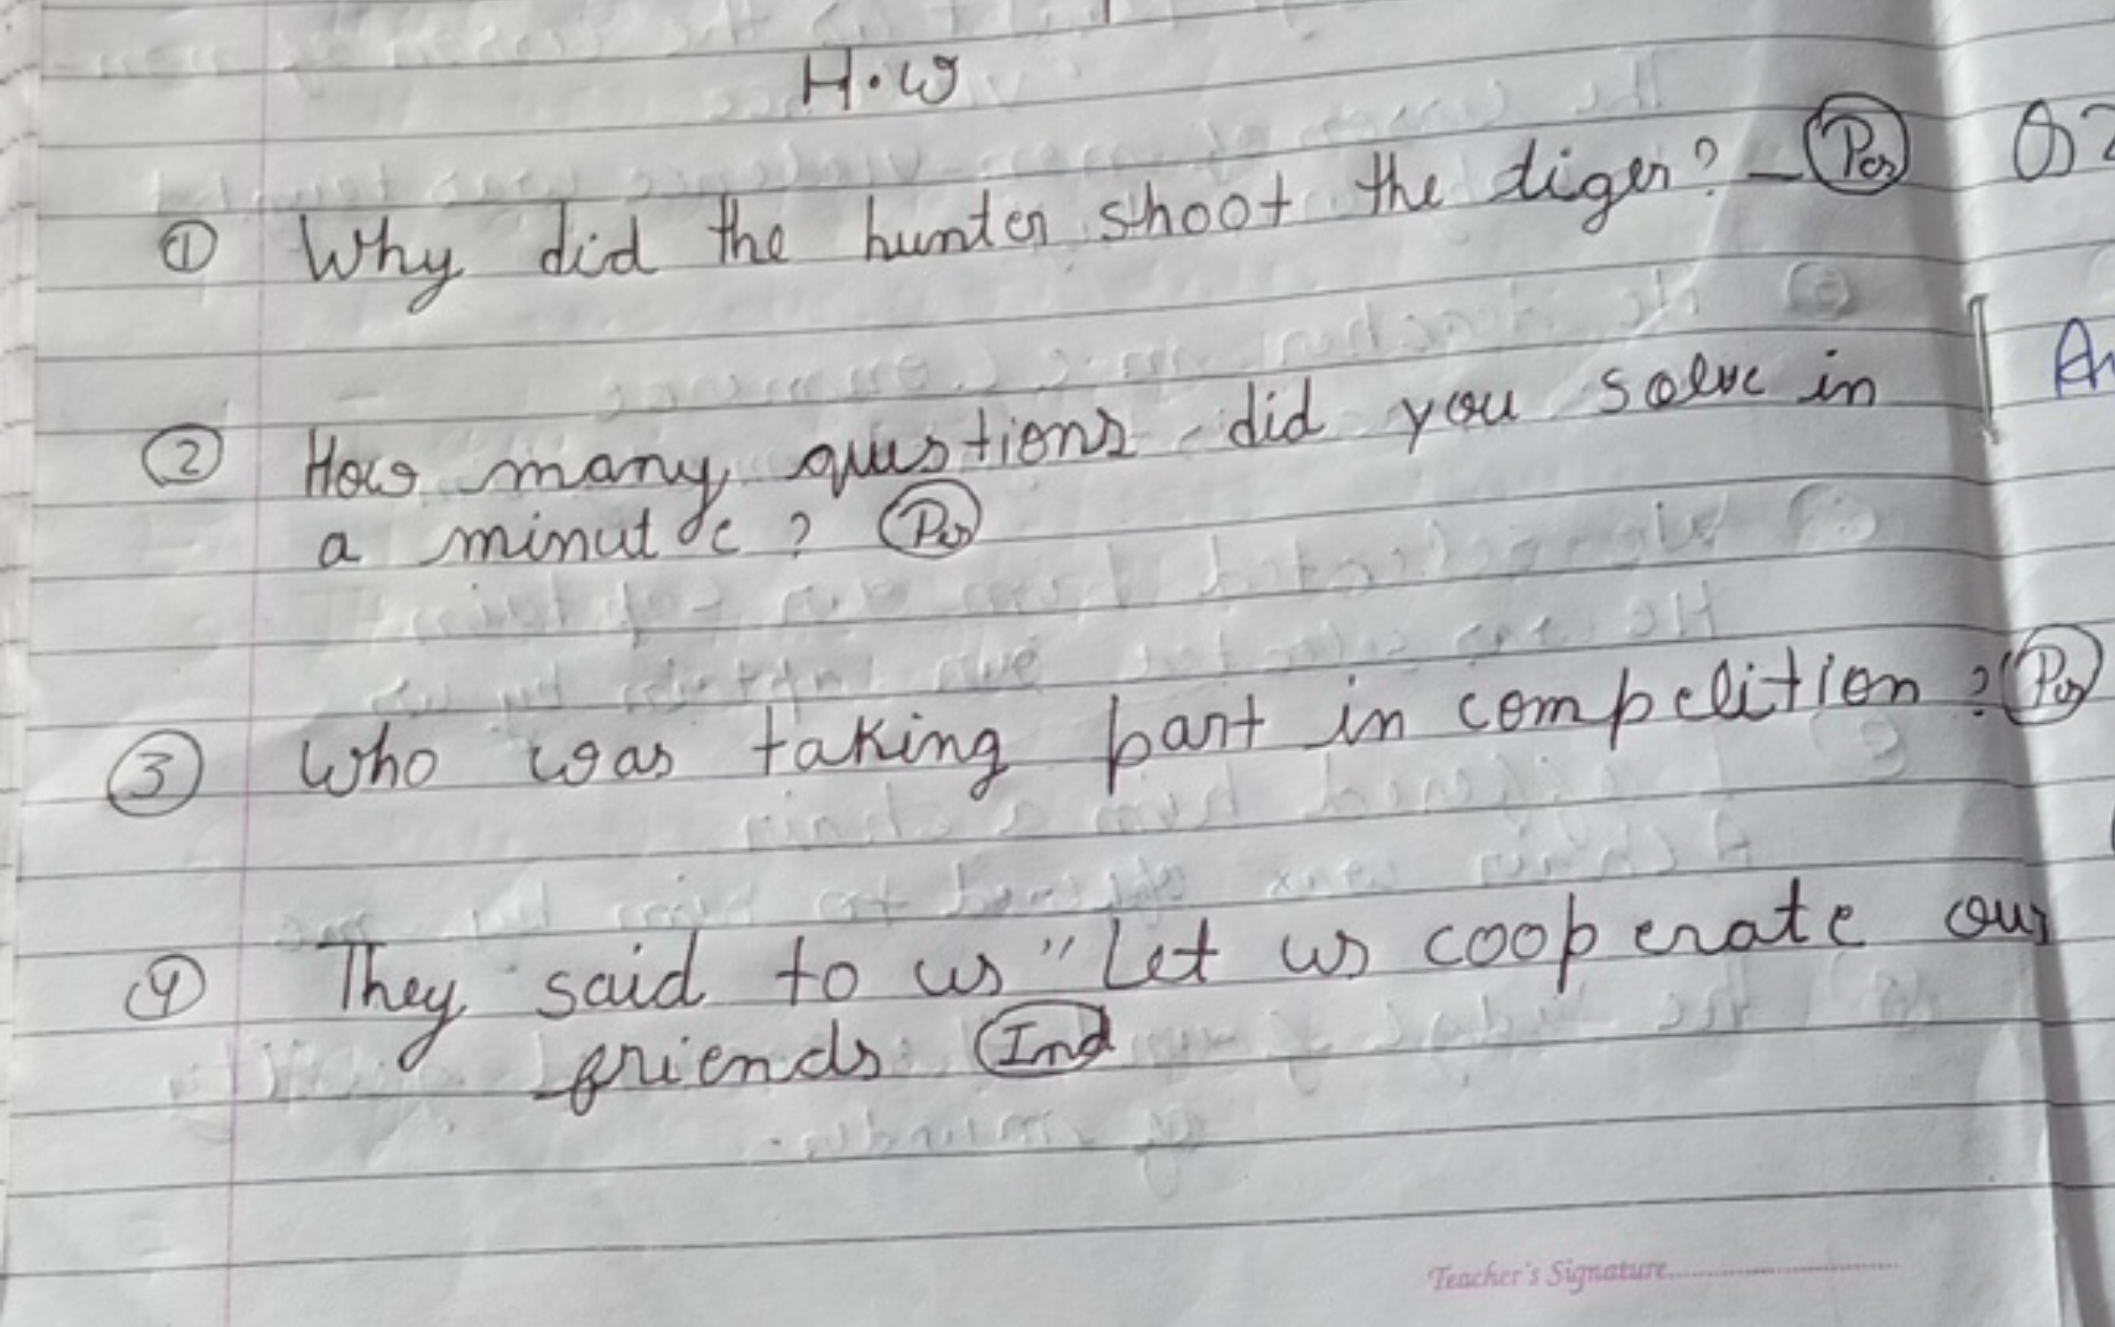 H.W
① Why did the hunter shoot the tiger? - Pas Q2
② How many questions did you solve in
a minute? Pas
An
③ Who was taking part in competition? Pas
④ They said to us "Let us cooperate our
friends Ind
Teacher's Signature